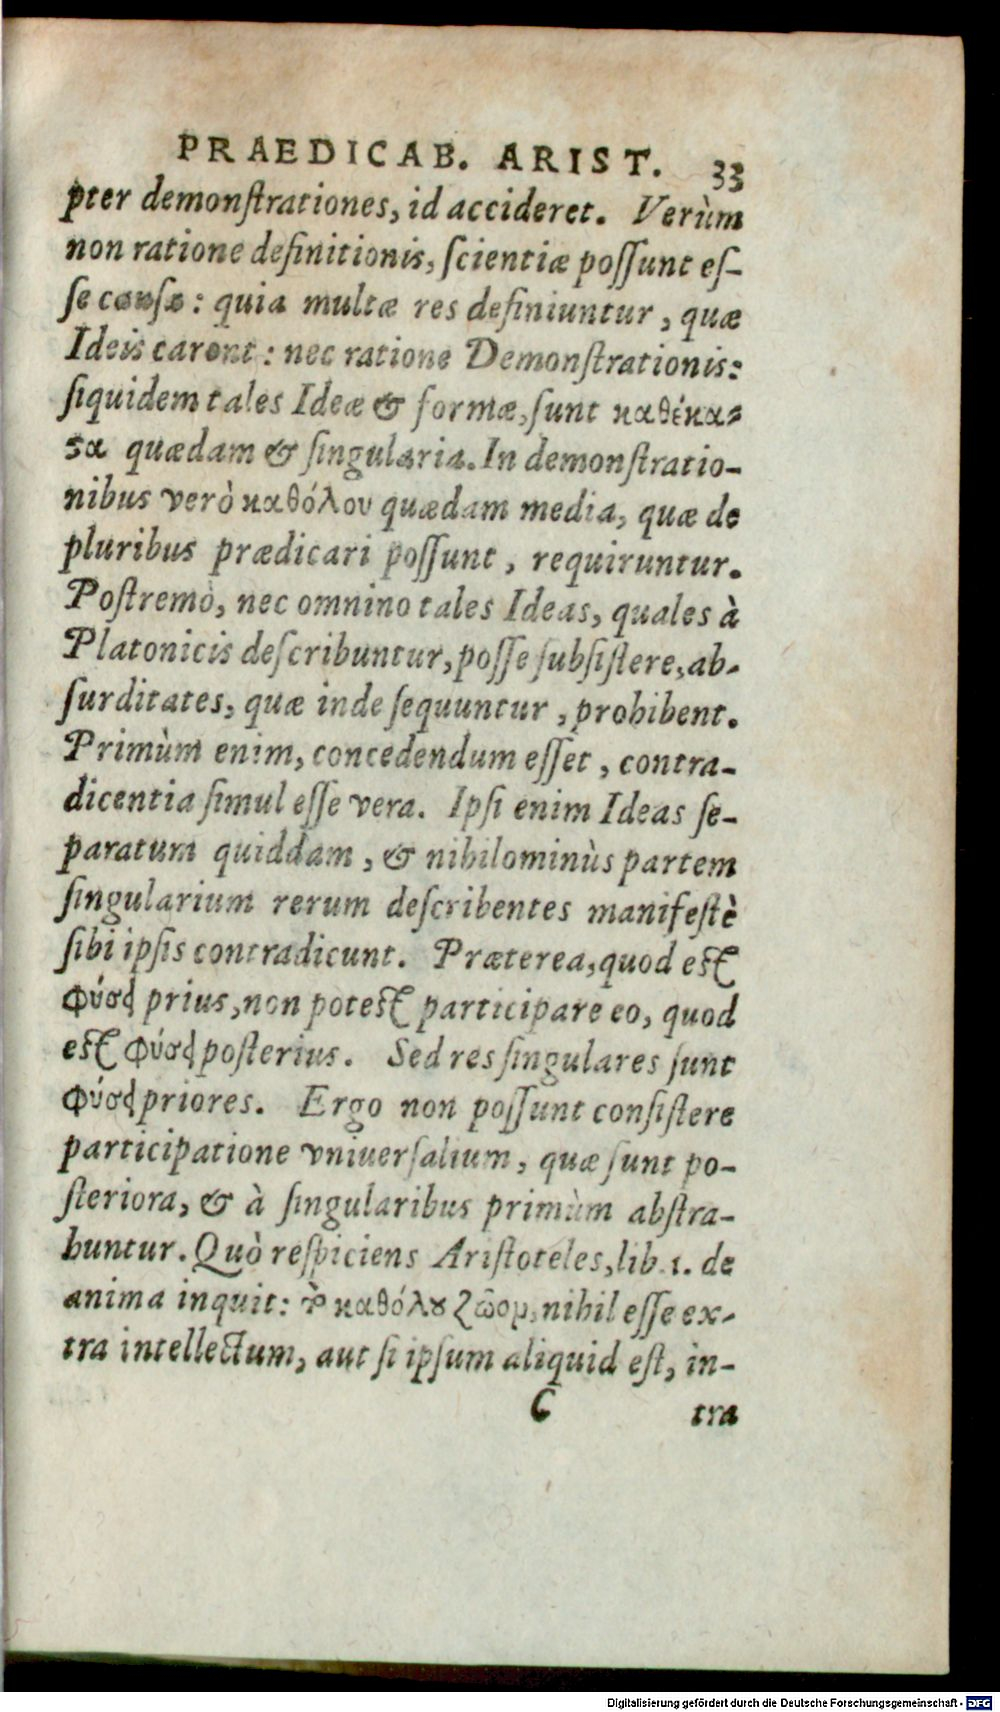 PRAEDICAB. ARIST. 33
pter demonſtrationes, id accideret. Verùm
non ratione definitionis, ſcientiæ poſſunt eſ-
ſe cauſæ: quia multæ res definiuntur, quæ
Ideis carent: nec ratione Demonſtrationis:
ſiquidem tales Ideæ & formæ, ſunt καθέκα-
ϛα quædam & ſingularia. In demonſtratio-
nibus verò καθόλου quædam media, quæ de
pluribus prædicari poſſunt, requiruntur.
Poſtremò, nec omnino tales Ideas, quales à
Platonicis deſcribuntur, poſſe ſubſiſtere, ab-
ſurditates, quæ inde ſequuntur, prohibent.
Primùm enim, concedendum eſſet, contra-
dicentia ſimul eſſe vera. Ipſi enim Ideas ſe-
paratum quiddam, & nihilominùs partem
ſingularium rerum deſcribentes manifeſtè
ſibi ipſis contradicunt. Præterea, quod eſt
φύσει prius, non poteſt participare eo, quod
eſt φύσει poſterius. Sed res ſingulares ſunt
φύσει priores. Ergo non poſſunt conſiſtere
participatione vniuerſalium, quæ ſunt po-
ſteriora, & à ſingularibus primùm abſtra-
huntur. Quò reſpiciens Ariſtoteles, lib. 1. de
anima inquit: τὸ καθόλȣ ζῶον, nihil eſſe ex-
tra intellectum, aut ſi ipſum aliquid eſt, in-
C tra
Digitalisierung gefördert durch die Deutsche Forschungsgemeinschaft - DFG